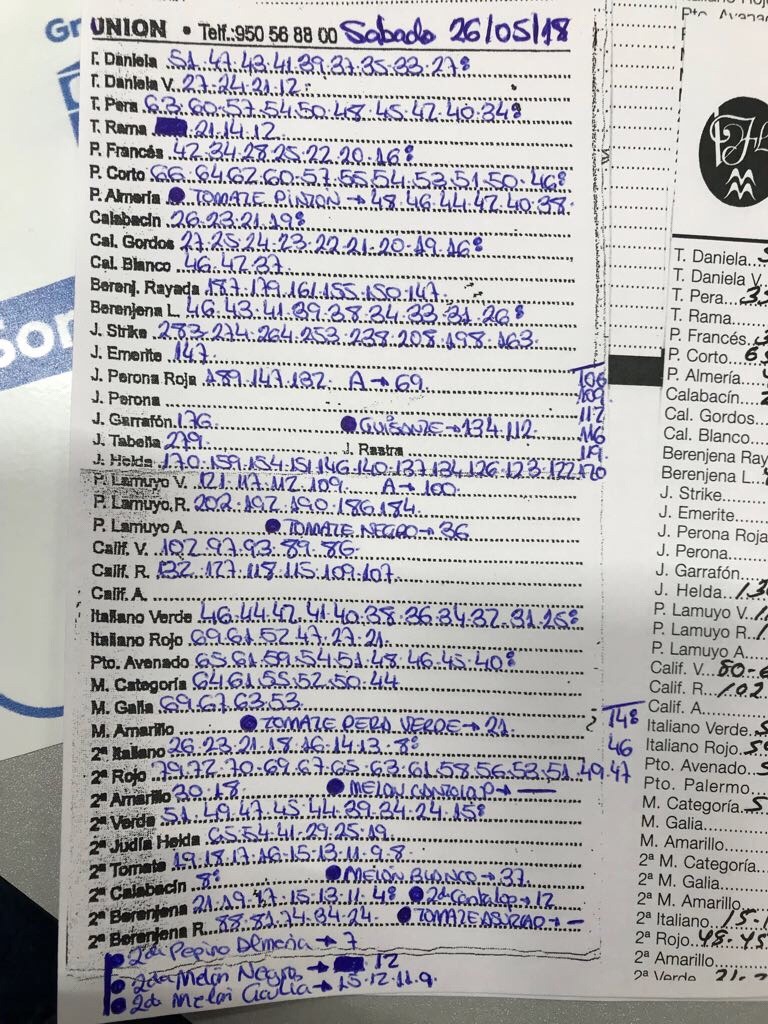 UNION • Telf.:950 56 88 00 Sabado 26/05/18
T. Daniela 51.47.43.41.39.37.35.33.27º
T. Daniela V. 27.24.21.12.
T. Pera 63.60.57.54.50.48.45.42.40.34º
T. Rama 21.14.12
P. Francés 42.34.28.25.22.20.16º
P. Corto 66.64.62.60.57.55.54.53.51.50.46º
P. Almería ● TOMATE PINTON → 48.46.44.42.40.38.
Calabacín 26.23.21.19º
Cal. Gordos 27.25.24.23.22.21.20.19.16º
Cal. Blanco 46.42.37.
Berenj. Rayada 187.179.161.155.150.147.
Berenjena L. 46.43.41.39.38.34.33.31.26º
J. Strike 283.274.264.253.238.208.198.163.
J. Emerite 147
J. Perona Roja 189.147.132. A → 69. 106
J. Perona 109
J. Garrafón 176 ● GUISANTE → 134.112. 112
116
J. Tabella 279. J. Rastra 119.
J. Helda 170.159.154.151.146.140.137.134.126.123.122.120
P. Lamuyo V. 121.117.112.109. A → 100.
P. Lamuyo R. 202.192.190.186.184.
P. Lamuyo A. ● TOMATE NEGRO → 36
Calif. V. 102.97.93.89.86.
Calif. R. 132.127.118.115.109.107.
Calif. A.
Italiano Verde 46.44.42.41.40.38.36.34.32.31.25º
Italiano Rojo 69.61.52.47.27.21.
Pto. Avenado 65.61.59.54.51.48.46.45.40º
M. Categoría 64.61.55.52.50.44
M. Galia 69.67.63.53.
M. Amarillo ● TOMATE PERA VERDE → 21. 148
2ª Italiano 26.23.21.18.16.14.13.8º 46
2ª Rojo 79.72.70.69.67.65.63.61.58.56.53.51.49.47
2ª Amarillo 30.18. ● MELON CANTALO P → —
2ª Verde 51.49.47.45.44.39.34.24.15º
2ª Judía Helda 65.54.41.29.25.19.
2ª Tomate 19.18.17.16.15.13.11.9.8
2ª Calabacín 8º ● MELON BLANCO → 37.
2ª Berenjena 21.19.17.15.13.11.4º ● 2da Cantalop → 12
2ª Berenjena R. 88.81.74.34.24. ● TOMATE ASURCADO → —
● 2da Pepino Almeria → 7
● 2da Melon Negros → 12
● 2da Melon Galia → 15.12.11.9.
Pto. Avenado
T. Daniela
T. Daniela V.
T. Pera
T. Rama
P. Francés
P. Corto
P. Almería
Calabacín
Cal. Gordos
Cal. Blanco
Berenjena Ray
Berenjena L.
J. Strike
J. Emerite
J. Perona Roja
J. Perona
J. Garrafón
J. Helda
P. Lamuyo V.
P. Lamuyo R.
P. Lamuyo A.
Calif. V.
Calif. R. 102
Calif. A.
Italiano Verde
Italiano Rojo
Pto. Avenado
Pto. Palermo
M. Categoría
M. Galia
M. Amarillo
2ª M. Categoría
2ª M. Galia
2ª M. Amarillo
2ª Italiano
2ª Rojo 48.45
2ª Amarillo
2ª Verde